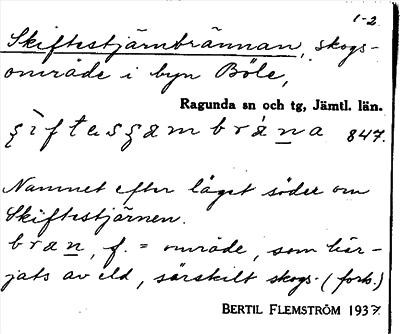 1-2
Skiftestjärnbrännan, skogs-
område i byn Böle,
Ragunda sn och tg, Jämtl. län.
847.
Namnet efter läget söder om
Skiftestjärnen.
bræn, f. = område, som här-
jats av eld, särskilt skogs- (forts.)
BERTIL FLEMSTRÖM 1937.